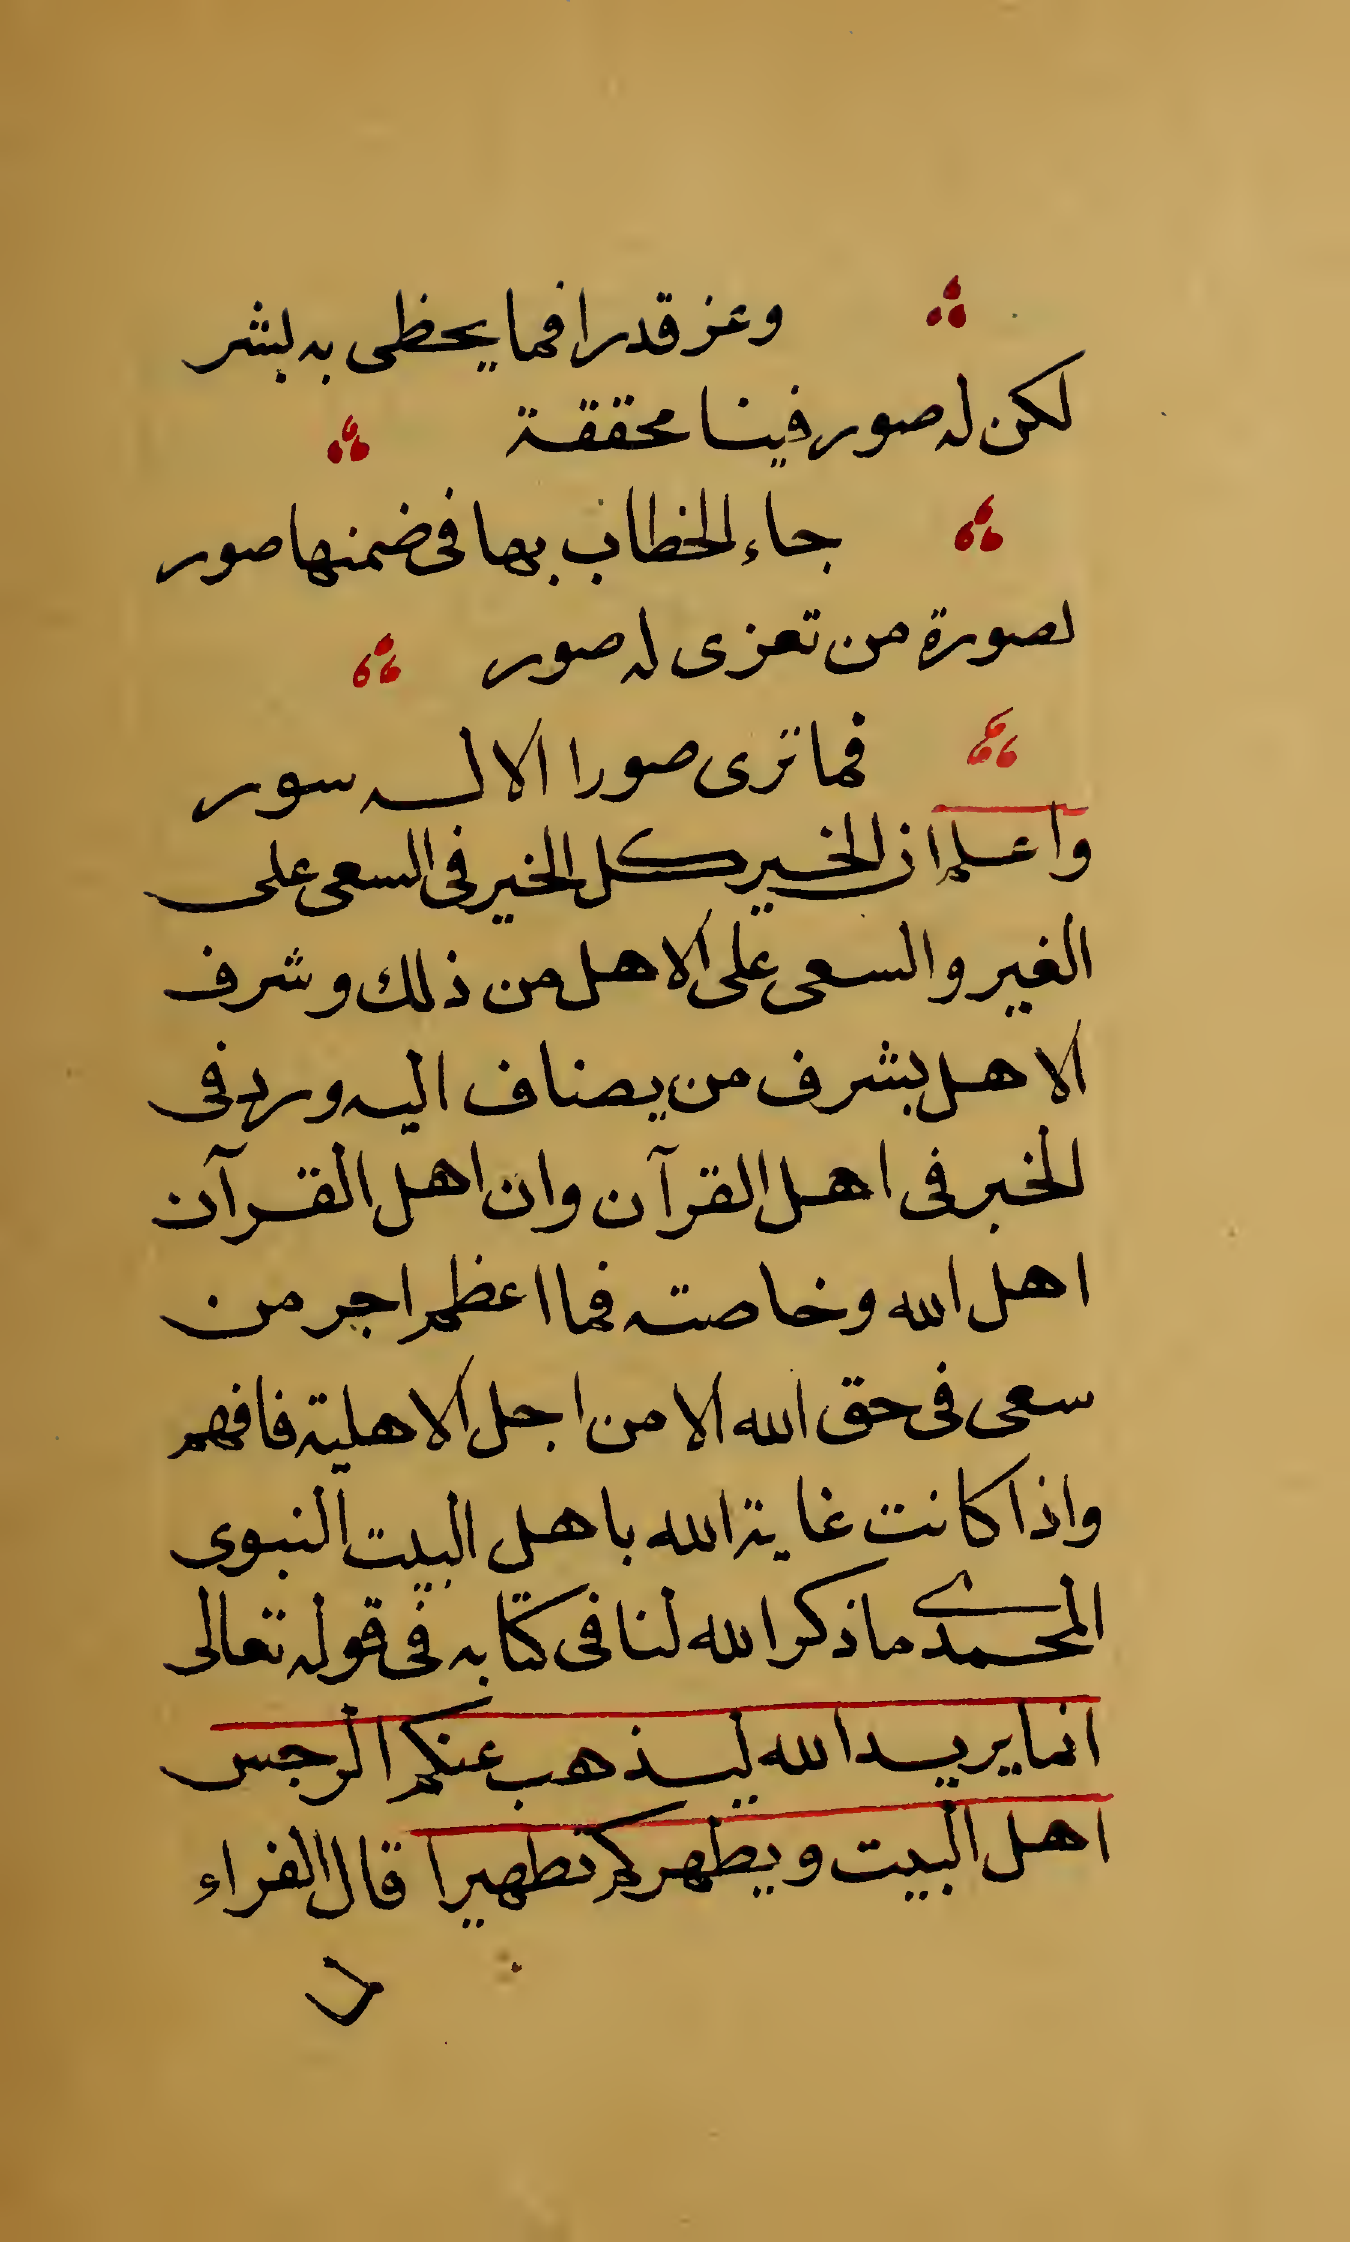 وعز قدرا فما يحظى به بشر
لكن له صور فينا محققة
جاء الخطاب بها فى ضمنها صور
لصورة من تعزى له صور
فما ترى صورا الا له سور
واعلم ان الخير كل الخير فى السعى على
الغير والسعى على الاهل من ذلك وشرف
الاهل بشرف من يضاف اليه ورد فى
الخبر فى اهل القرآن وان اهل القرآن
اهل الله وخاصته فما اعظم اجر من
سعى فى حق الله الا من اجل الاهلية فافهم
واذا كانت غاية الله باهل البيت النبوى
المحمدى ما ذكر الله لنا فى كتابه فى قوله تعالى
انما يريد الله ليذهب عنكم الرجس
اهل البيت ويطهركم تطهيرا قال الفراء